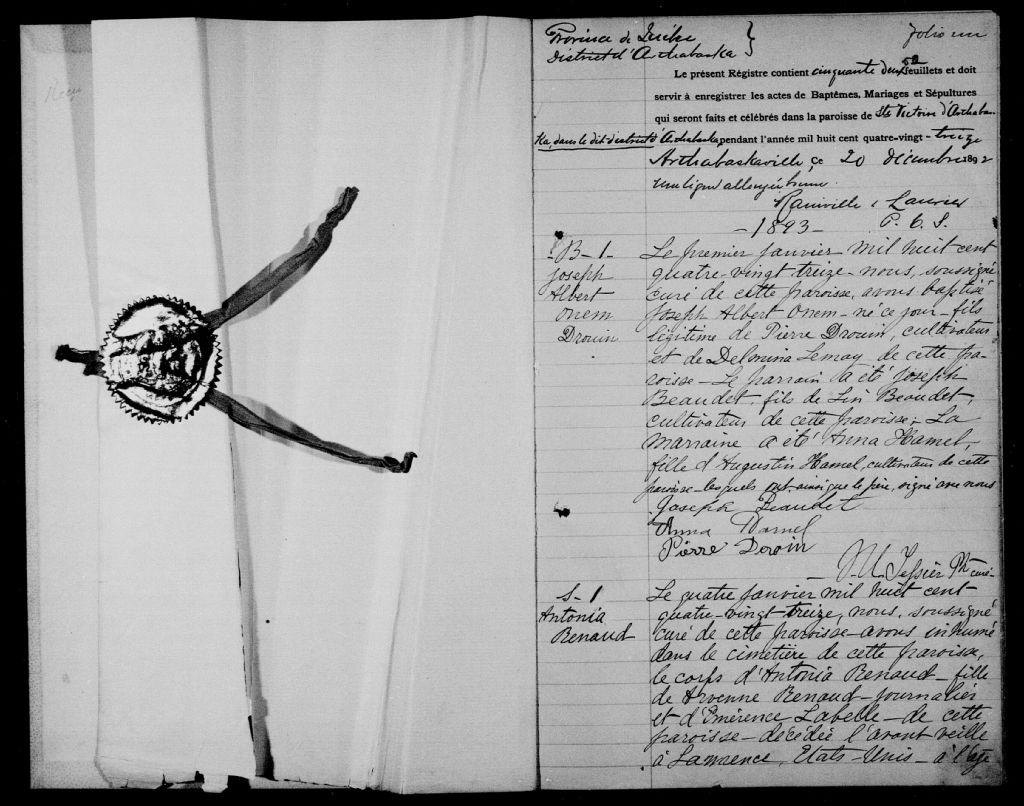 Province de Québec
District d'Arthabaska }
folio un
Le présent Régistre contient cinquante deux feuillets et doit
servir à enregistrer les actes de Baptêmes, Mariages et Sépultures
qui seront faits et célébrés dans la paroisse de Ste Victoire d'Arthabas-
ka, dans le dit district d'Arthabaska pendant l'année mil huit cent quatre-vingt-treize
Arthabaskaville, ce 20 décembre 1892
une ligne allongée bonne.
Rainville & Laurier
P. C. S.
- 1893 -
B-1-
Joseph
Albert
Onem
Drouin
Le premier janvier mil huit cent
quatre-vingt treize - nous, soussigné
curé de cette paroisse, avons baptisé
Joseph Albert Onem - né ce jour - fils
légitime de Pierre Drouin, cultivateur
et de Delmina Lemay de cette pa-
roisse - Le parrain a été Joseph
Beaudet, fils de Beaudet,
cultivateur de cette paroisse; La
marraine a été Anna Hamel,
fille d'Augustin Hamel, cultivateur de cette
paroisse - lesquels ont, ainsi que le père, signé avec nous
Joseph Beaudet
Anna Hamel
Pierre Drouin
Ptre curé-
S-1
Antonia
Renaud
Le quatre janvier mil huit cent-
quatre-vingt-treize, nous, soussigné
curé de cette paroisse avons inhumé
dans le cimetière de cette paroisse,
le corps d'Antonia Renaud - fille
de Renaud - journalier
et d'Emérence Labelle - de cette
paroisse - décédée l'avant veille
à Lawrence, Etats-Unis - à l'âge